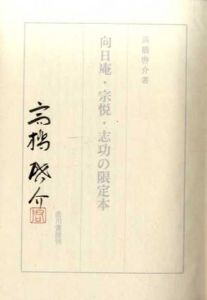 高橋啓介著
向日庵・宗悦・志功の限定本
高橋啓介
湯川書房刊